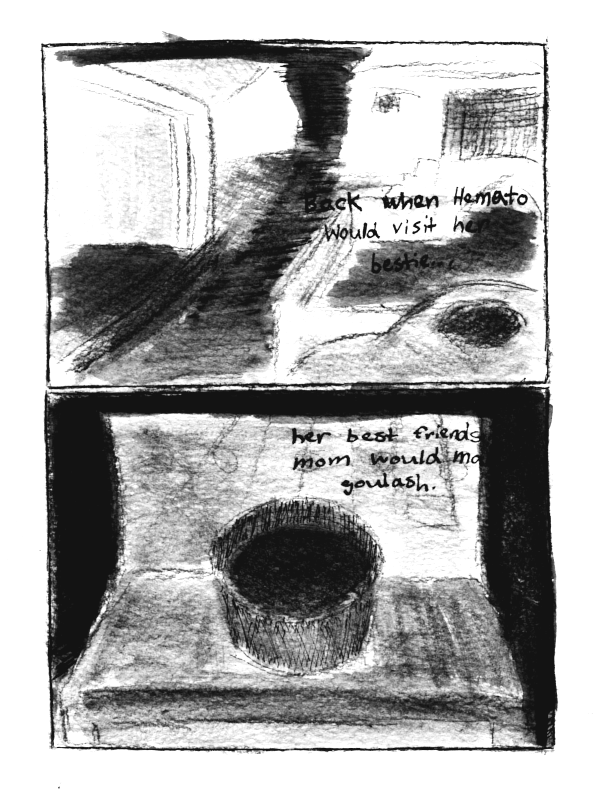 Back when Hemato
Would visit her
bestie...
her best friends
mom would ma
goulash.